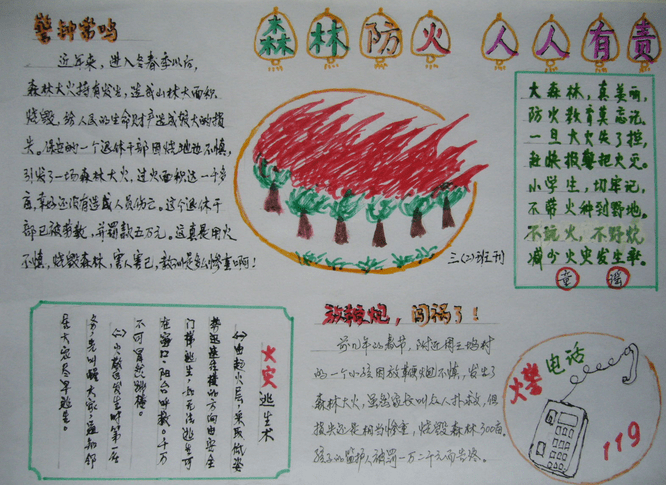 警钟常鸣
森林防火 人人有责
近年来，进入冬春季以后，
森林大火持有发生，造成山林大面积
烧毁，给人民的生命财产造成很大的损
失。保定的一个退休干部因烧地边不慎，
引发了一场森林大火，过火面积达一千多
亩，幸好还没有造成人员伤亡。这个退休干
部已被拘教，并罚款五万元。这真是用火
不慎，烧毁森林，害人害己，教训是多么惨重啊！
三(2)班王刊
大森林，真美丽，
防火教育莫忘记，
一旦大火失了控，
赶快报警把火灭。
小学生，切牢记，
不带火种到野地。
不玩火，不野炊
减少火灾发生率。
童谣
火灾逃生术
(一)由起火层，采取低姿
势迅速往楼的方向由安全
门梯逃生，如无法逃生可
在窗口、阳台呼救。千万
不可冒然跳楼。
(二)火灾发生时第一个
务先叫醒大家，通知邻
居大家尽早逃生。
放鞭炮，闯祸了！
前几年的春节，附近周王鸡村
的一个小孩因放鞭炮不慎，发生了
森林大火，虽然家长叫众人扑救，但
损失还是相当惨重，烧毁森林300亩，
孩子的监护人被罚一万二千元而告终。
火警电话
119